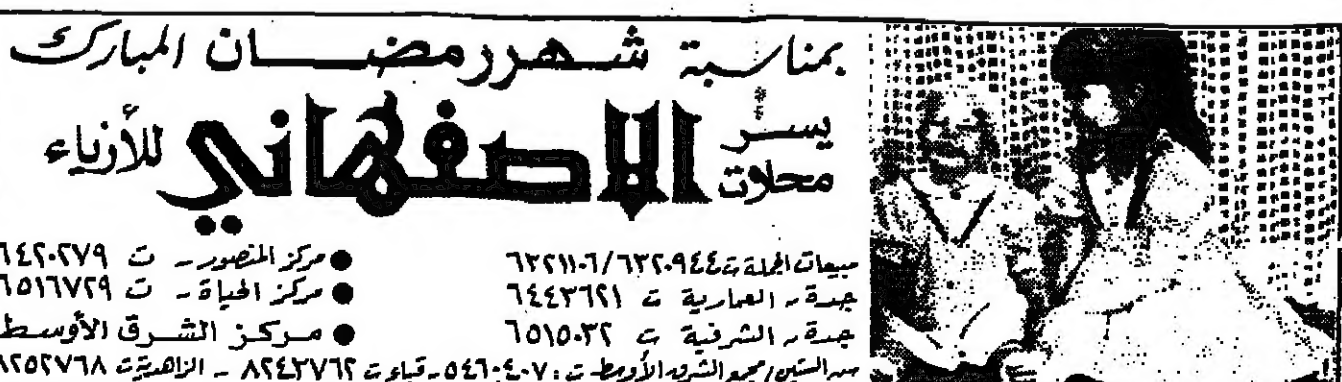 بمناسبة شهر رمضان المبارك
يسر
محلات الاصفهاني للأزياء
مبيعات الجملة ت ٦٣٢٠٩٤٤/٦٣٢١١٠٦
جدة - العمارية ت ٦٤٤٣٦٢١
جدة - الشرفية ت ٦٥١٥٠٣٢
● مركز المنصور - ت ٦٤٢٠٢٧٩
● مركز الحياة - ت ٦٥١٦٧٢٩
● مركز الشرق الأوسط
الستين / مجمع الشرق الأوسط - ت : ٥٤٦٠٤٠٧ - قباء ت ٨٢٤٣٧٦٢ - الزاهدية ت ٨٢٥٢٧٦٨